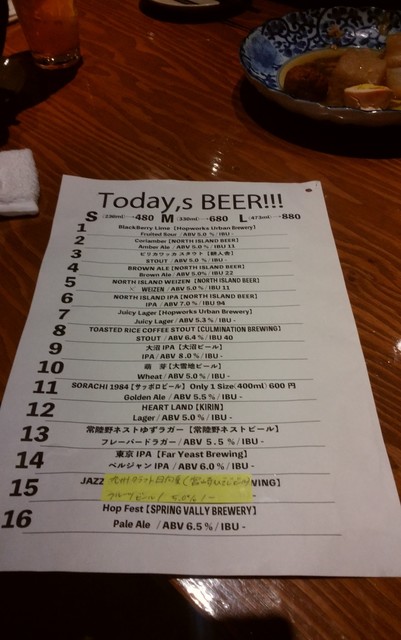 Today,s BEER!!!
S (236ml)…480 M (330ml)…680 L (473ml)…880
1 BlackBerry Lime【Hopworks Urban Brewery】
Fruited Sour / ABV 5.0 % / IBU -
2 Coriander【NORTH ISLAND BEER】
Amber Ale / ABV 5.0 % / IBU 11
3 ピリカワッカ スタウト【
STOUT / ABV 5.0 % / IBU -
4 BROWN ALE【NORTH ISLAND BEER】
Brown Ale / ABV 5.0% / IBU 22
5 NORTH ISLAND WEIZEN【NORTH ISLAND BEER】
WEIZEN / ABV 5.0 % / IBU 11
6 NORTH ISLAND IPA【NORTH ISLAND BEER】
IPA / ABV 7.0 % / IBU 94
7 Juicy Lager【Hopworks Urban Brewery】
Juicy Lager / ABV 5.3 % / IBU -
8 TOASTED RICE COFFEE STOUT【CULMINATION BREWING】
STOUT / ABV 6.4 % / IBU 40
9 大沼 IPA【大沼ビール】
IPA / ABV 8.0 % / IBU -
10 萌芽【大雪地ビール】
Wheat / ABV 5.0 % / IBU -
11 SORACHI 1984【サッポロビール】Only 1 Size(400ml) 600 円
Golden Ale / ABV 5.5 % / IBU -
12 HEART LAND【KIRIN】
Lager / ABV 5.0 % / IBU -
13 常陸野ネストゆずラガー【常陸野ネストビール】
フレーバードラガー / ABV 5.5 % / IBU -
14 東京 IPA【Far Yeast Brewing】
ベルジャン IPA / ABV 6.0 % / IBU -
15 JAZZ 九州クラフト日向夏(宮崎ひでじビール) WING】
フルーツビール / 5.0% / - -
16 Hop Fest【SPRING VALLY BREWERY】
Pale Ale / ABV 6.5 % / IBU -